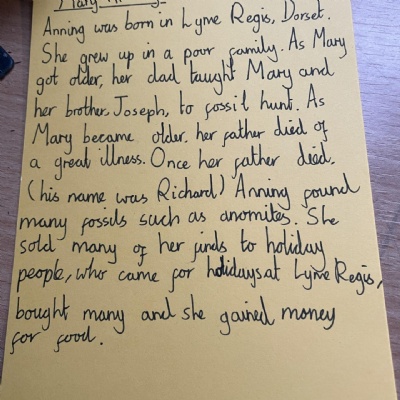 Mary Anning
Anning was born in Lyme Regis, Dorset.
She grew up in a poor family. As Mary
got older, her dad taught Mary and
her brother, Joseph, to fossil hunt. As
Mary became older, her father died of
a great illness. Once her father died,
(his name was Richard) Anning found
many fossils such as anomites. She
sold many of her finds to holiday
people, who came for holidays at Lyme Regis,
bought many and she gained money
for food.